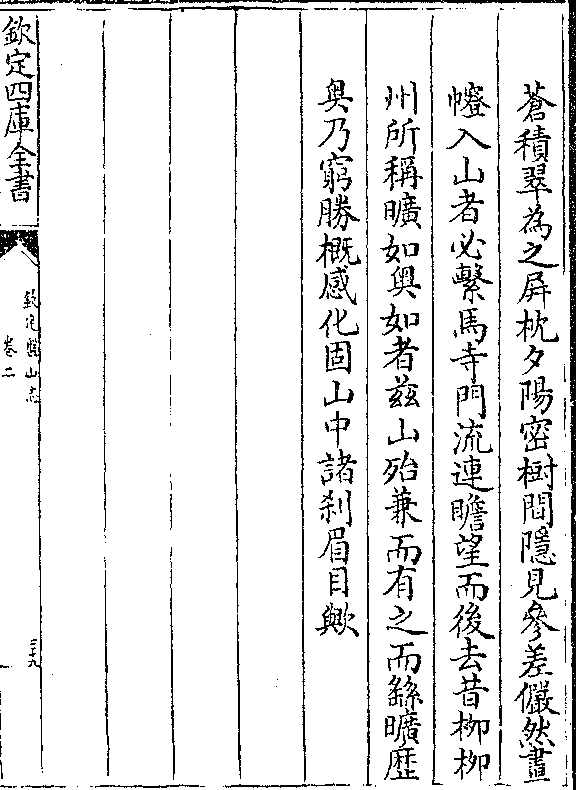 蒼積翠為之屏枕夕陽密樹間隱見參差儼然畫
㡧入山者必繫馬寺門流連瞻望而後去昔柳柳
州所稱曠如奥如者兹山殆兼而有之而繇曠歴
奥乃窮勝概感化固山中諸刹眉目歟
欽定四庫全書
欽定盤山志
卷二
三十九